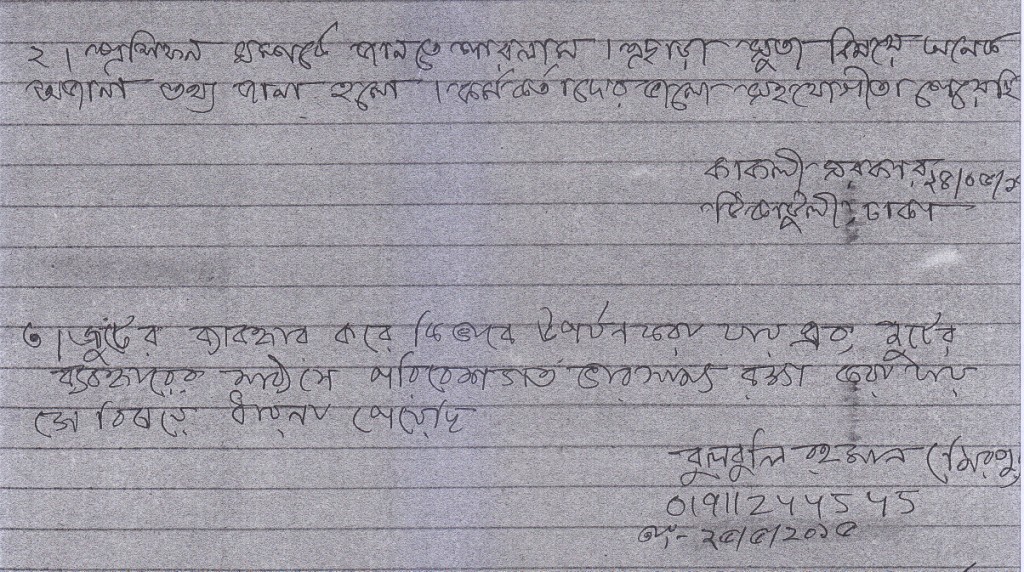 ২। প্রশিক্ষন সম্পর্কে জানতে পারলাম। এছাড়া সুতা বিষয়ে অনেক
অজানা তথ্য জানা হলো। কর্মকর্তাদের ভালো সহযোগীতা পেয়েছি
কাকলী সরকার ২৪/০৫/
টিকাটুলী, ঢাকা
৩। জুটের ব্যবহার করে কিভাবে উপার্জন করা যায় এবং জুটের
ব্যবহারের মাধ্যমে পরিবেশগত ভারসাম্য রক্ষা করা যায়
সে বিষয়ে ধারনা পেয়েছি
বুলবুলি রহমান (মিরপু
01911244545
তাং- ২৫/৫/2০১৫